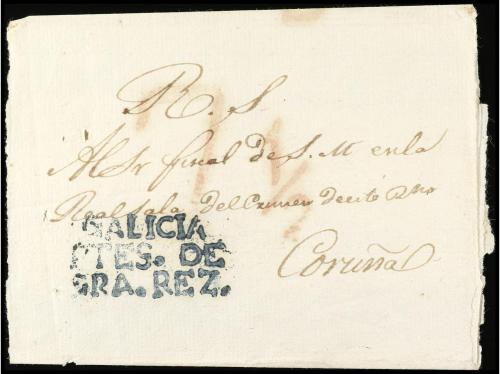 R. S.
Al Sr fiscal de S. M en la
Real sala del Crimen de este Rno
Coruña
GALICIA
PTES. DE
GRA. REZ.